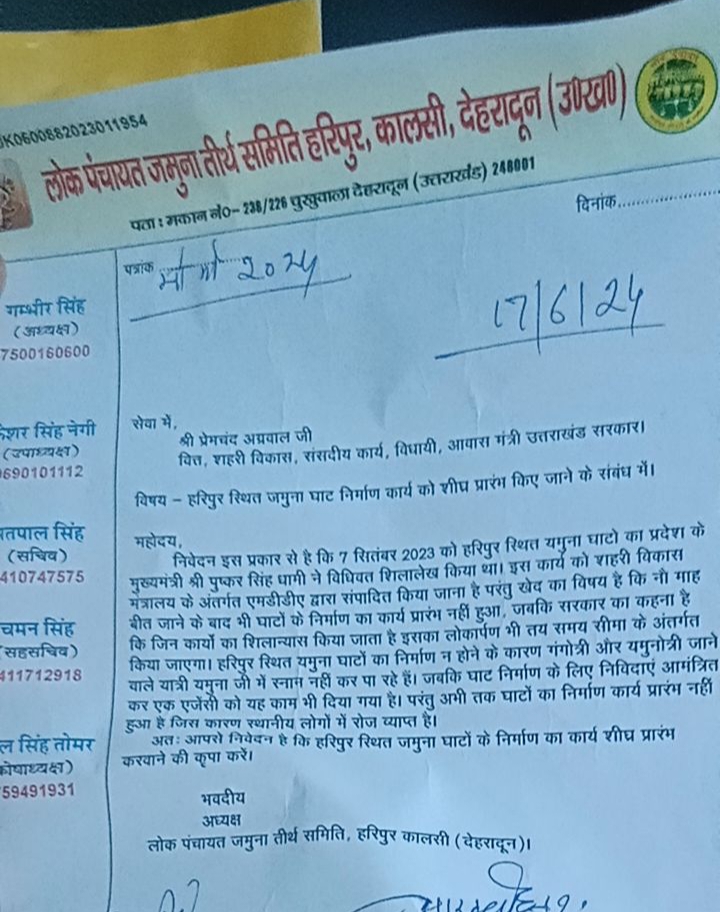 UK0600682023011954
लोक पंचायत जमुना तीर्थ समिति हरिपुर, कालसी, देहरादून (उ०ख०)
पता : मकान नं०- 236/226 चुखुवाला देहरादून (उत्तराखंड) 248001
दिनांक
पत्रांक 2024
17/6/24
गम्भीर सिंह
(अध्यक्ष)
7500160600
केशर सिंह नेगी
(उपाध्यक्ष)
690101112
सतपाल सिंह
(सचिव)
410747575
चमन सिंह
(सहसचिव)
411712918
ल सिंह तोमर
(कोषाध्यक्ष)
59491931
सेवा में,
श्री प्रेमचंद अग्रवाल जी
वित्त, शहरी विकास, संसदीय कार्य, विधायी, आवास मंत्री उत्तराखंड सरकार।
विषय – हरिपुर स्थित जमुना घाट निर्माण कार्य को शीघ्र प्रारंभ किए जाने के संबंध में।
महोदय,
निवेदन इस प्रकार से है कि 7 सितंबर 2023 को हरिपुर स्थित यमुना घाटो का प्रदेश के
मुख्यमंत्री श्री पुष्कर सिंह धामी ने विधिवत शिलालेख किया था। इस कार्य को शहरी विकास
मंत्रालय के अंतर्गत एमडीडीए द्वारा संपादित किया जाना है परंतु खेद का विषय है कि नौ माह
बीत जाने के बाद भी घाटों के निर्माण का कार्य प्रारंभ नहीं हुआ, जबकि सरकार का कहना है
कि जिन कार्यों का शिलान्यास किया जाता है इसका लोकार्पण भी तय समय सीमा के अंतर्गत
किया जाएगा। हरिपुर स्थित यमुना घाटों का निर्माण न होने के कारण गंगोत्री और यमुनोत्री जाने
वाले यात्री यमुना जी में स्नान नहीं कर पा रहे हैं। जबकि घाट निर्माण के लिए निविदाएं आमंत्रित
कर एक एजेंसी को यह काम भी दिया गया है। परंतु अभी तक घाटों का निर्माण कार्य प्रारंभ नहीं
हुआ है जिस कारण स्थानीय लोगों में रोज व्याप्त है।
अतः आपसे निवेदन है कि हरिपुर स्थित जमुना घाटों के निर्माण का कार्य शीघ्र प्रारंभ
करवाने की कृपा करें।
भवदीय
अध्यक्ष
लोक पंचायत जमुना तीर्थ समिति, हरिपुर कालसी (देहरादून)।